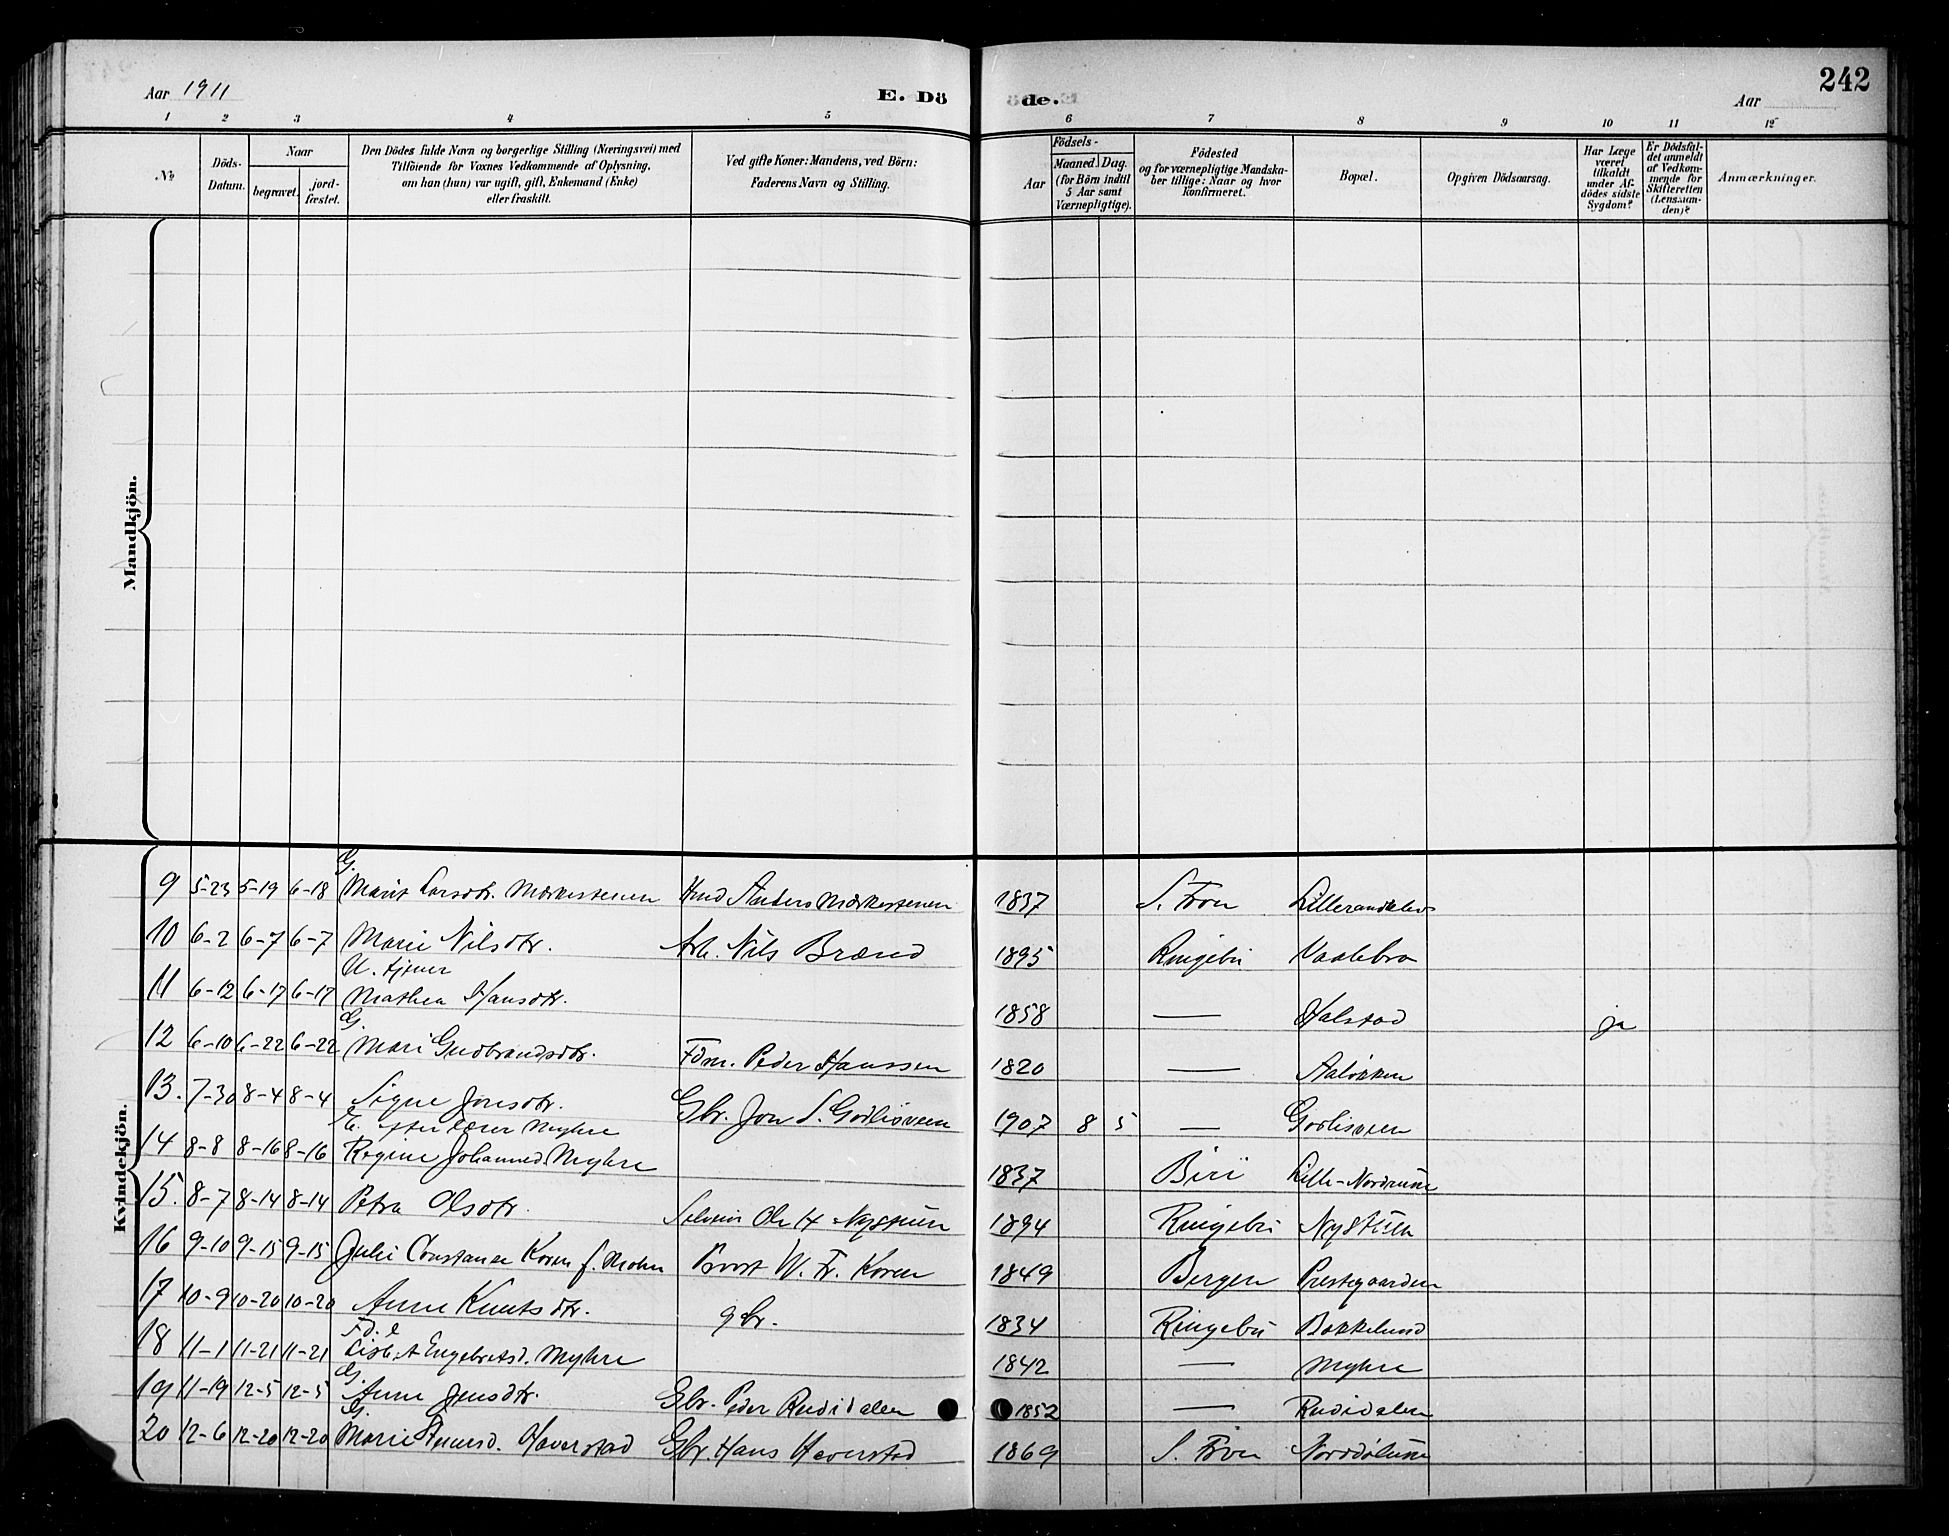 Aar 1911
E. Dö
de.
Aar
242
1 2 3 4 5 6 7 8 9 10 11 12
No
Döds-Datum.
Naar
begravet.
jord-fæstet.
Den Dödes fulde Navn og borgerlige Stilling (Næringsvei) med
Tilföiende for Voxnes Vedkommende af Oplysning,
om han (hun) var ugift, gift, Enkemand (Enke)
eller fraskilt.
Ved gifte Koner: Mandens, ved Börn:
Faderens Navn og Stilling.
Födsels-
Aar
Maaned. Dag.
(for Börn indtil
5 Aar samt
Værnepligtige).
Födested
og for værnepligtige Mandska-
ber tillige: Naar og hvor
konfirmeret.
Bopæl.
Opgiven Dödsaarsag.
Har Læge
været
tilkaldt
under Af-
dödes sidste
Sygdom?
Er Dödsfal-
det anmeldt
af Vedkom-
mende for
Skifteretten
(Lensman-
den)?
Anmærkninger.
Mandkjön.
Kvindekjön.
G.
9 5-23 5-19 6-18 Marit Larsdtr. Mærkestenen Anders Mærkestenen 1837 S. Fron
10 6-2 6-7 6-7 Marie Nilsdtr. Arb. Nils Brænd 1895 Ringebu Vaalebro
U. tjener
11 6-12 6-17 6-17 Mathea Hansdtr. 1858 — Halstad ja
G.
12 6-10 6-22 6-22 Mari Gudbrandsdtr. Fdm. Peder Hanssen 1820 — Aaløkken
13. 7-30 8-4 8-4 Signe Jonsdtr. Gbr. Jon S. Godlisveen 1907 8 5 — Godlisveen
E. efter Lærer Myhre
14 8-8 8-16 8-16 Regine Johannesd. Myhre 1837 Biri Lille-Nordrum
15. 8-7 8-14 8-14 Petra Olsdtr. Selveier Ole H. Nystuen 1894 Ringebu Nystuen
16 9-10 9-15 9-15 Julie Constance Koren f. Mohn Provst W. Fr. Koren 1849 Bergen Prestegaarden
17 10-9 10-20 10-20 Anne Knutsdtr. gbr. 1834 Ringebu Bakkelund
Fd. e
18 11-1 11-21 11-21 Lisbet Engebretsd. Myhre 1842 — Myhre
G.
19 11-19 12-5 12-5 Anne Jensdtr. Gbr. Peder Rudidalen 1852 — Rudidalen
G.
20 12-6 12-20 12-20 Marie Haverstad Gbr. Hans Haverstad 1869 S. Fron